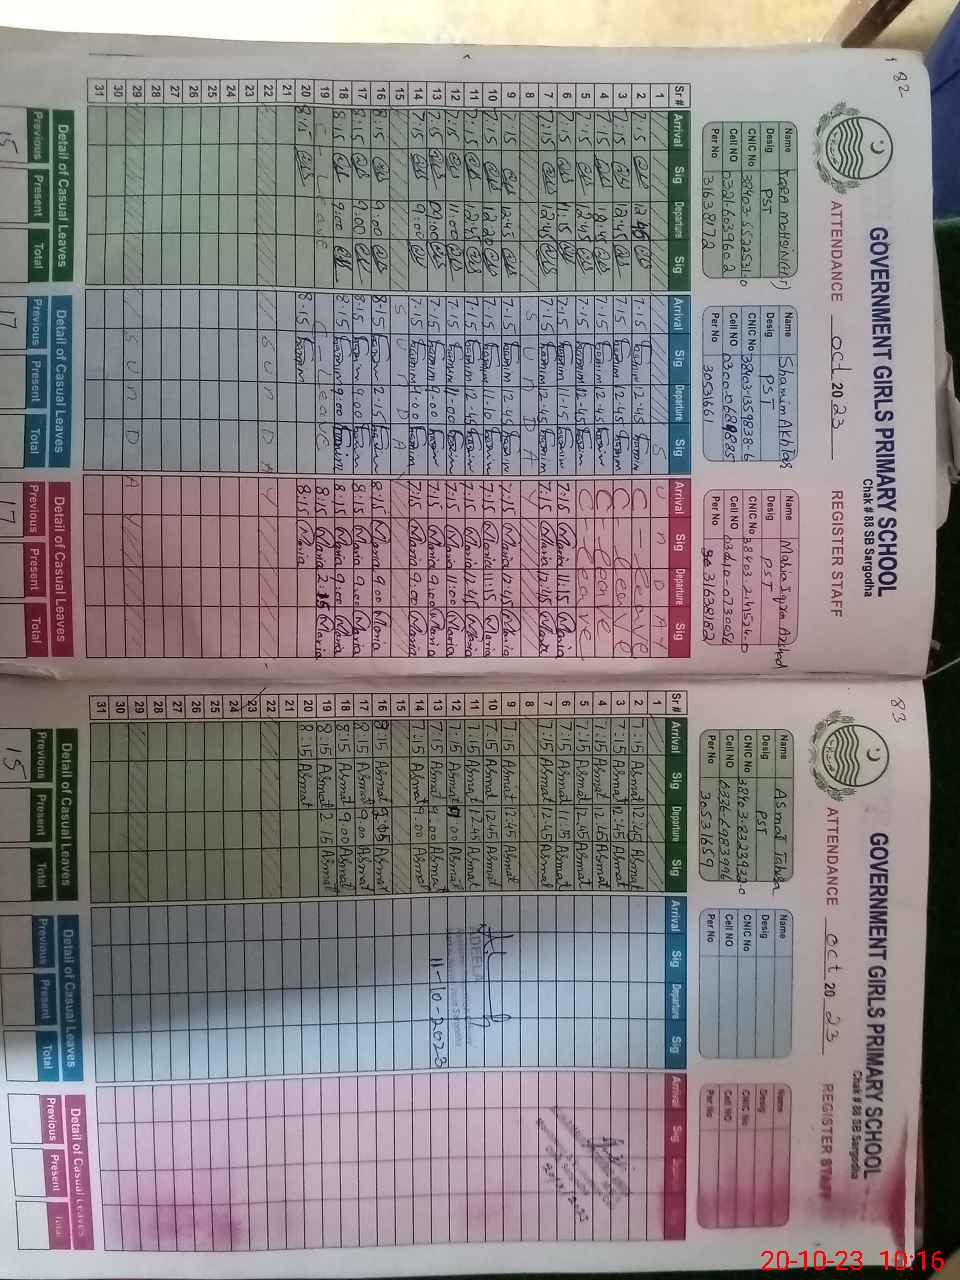 82
GOVERNMENT GIRLS PRIMARY SCHOOL
Chak # 88 SB Sargodha
ATTENDANCE oct 2023 REGISTER STAFF
Name
Desig PST
CNIC No
Cell NO 0321-6037602
Per No 31638172
Name Shamim Akhtar
Desig PST
CNIC No 38403-1359838-6
Cell NO 0300-0689885
Per No 30531661
Name Maria Iqra Arshad
Desig PST
CNIC No
Cell NO
Per No 31638182
Sr # Arrival Sig Departure Sig Arrival Sig Departure Sig Arrival Sig Departure Sig
1 S U n D A Y
2 7:15 12:45 7:15 12:45 C - Leave
3 7:15 12:45 7:15 12:45 C - Leave
4 7:15 12:45 7:15 12:45 C - Leave
5 7:15 12:45 7:15 12:45 C - Leave
6 7:15 11:15 7:15 11:15 7:15 Maria 11:15 Maria
7 7:15 12:45 7:15 12:45 7:15 Maria 12:45 Maria
8 S U N D A Y
9 7:15 12:45 7:15 12:45 7:15 Maria 12:45 Maria
10 7:15 12:20 7:15 11:10 7:15 Maria 11:15 Maria
11 7:15 12:45 7:15 12:45 7:15 Maria 12:45 Maria
12 7:15 11:00 7:15 11:00 7:15 Maria 11:00 Maria
13 7:15 09:00 7:15 9:00 7:15 Maria 9:00 Maria
14 7:15 9:00 7:15 9:00 7:15 Maria 9:00 Maria
15 S U N D A
16 8:15 9:00 8:15 2:15 8:15 Maria 9:00 Maria
17 8:15 9:00 8:15 9:00 8:15 Maria 9:00 Maria
18 8:15 9:00 8:15 9:00 8:15 Maria 9:00 Maria
19 C - Leave C - Leave 8:15 Maria 2:15 Maria
20 8:15 8:15 8:15 Maria
21
22 S U n D A Y
23
24
25
26
27
28
29 S U n D A Y
30
31
Detail of Casual Leaves Detail of Casual Leaves Detail of Casual Leaves
Previous Present Total Previous Present Total Previous Present Total
15 17 17
83
GOVERNMENT GIRLS PRIMARY SCHOOL
Chak # 88 SB Sargodha
ATTENDANCE oct 2023 REGISTER STAFF
Name Asmat Tahira
Desig PST
CNIC No
Cell NO 0336-6983996
Per No 30531659
Name
Desig
CNIC No
Cell NO
Per No
Name
Desig
CNIC No
Cell NO
Per No
Sr # Arrival Sig Departure Sig Arrival Sig Departure Sig Arrival Sig
1
2 7:15 Asmat 12:45 Asmat
3 7:15 Asmat 12:45 Asmat
4 7:15 Asmat 12:45 Asmat
5 7:15 Asmat 12:45 Asmat
6 7:15 Asmat 11:15 Asmat
7 7:15 Asmat 12:45 Asmat
8
9 7:15 Asmat 12:45 Asmat
10 7:15 Asmat 12:45 Asmat
11 7:15 Asmat 12:45 Asmat
12 7:15 Asmat 9:00 Asmat
13 7:15 Asmat 9:00 Asmat
14 7:15 Asmat 9:00 Asmat
15
16 8:15 Asmat Asmat
17 8:15 Asmat 9:00 Asmat
18 8:15 Asmat 9:00 Asmat
19 8:15 Asmat 2:15 Asmat
20 8:15 Asmat
21
22
23
24
25
26
27
28
29
30
31
ADEELA
11-10-2023
Detail of Casual Leaves Detail of Casual Leaves Detail of Casual Leaves
Previous Present Total Previous Present Total Previous Present Total
15
20-10-23 10:16